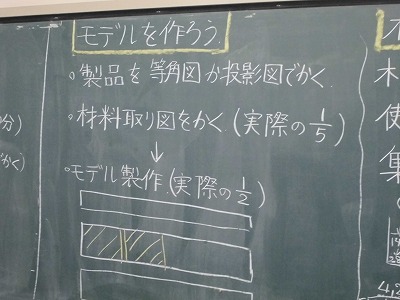 モデルを作ろう.
・製品を等角図か投影図でかく.
・材料取り図をかく.(実際の1/5)
↓
・モデル製作.(実際の1/2)
分)
かく)
木
使
集